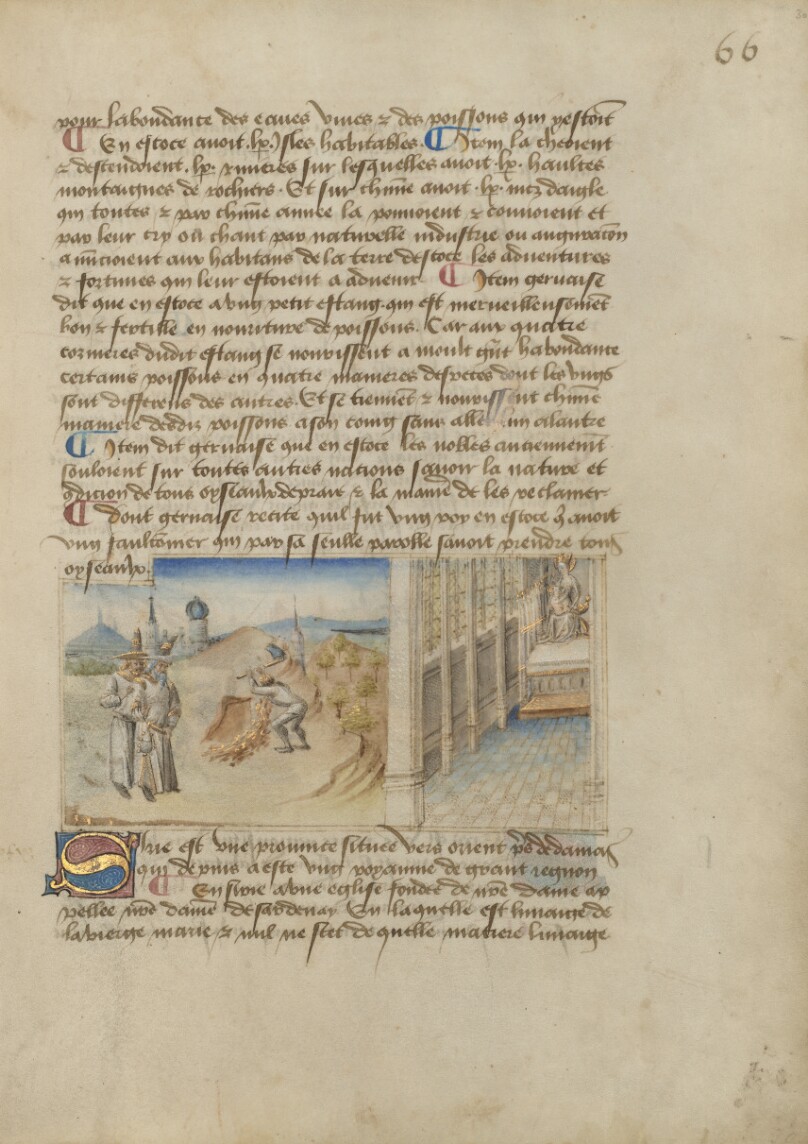 66
pour labondance des eaues viues ⁊ des poissons qui y estoiēt
En estoce auoit .lx. Isles habitables. Item la cheoient
⁊ descendoient .lx. riuieres sur lesquelles auoit .lx. haultes
montaignes de rochiers. Et sur chūne auoit .lx. nidz daigle
qui toutes ⁊ par chūne annee la ponnoient ⁊ couuoient et
par leur cry ou chant par naturelle industrie ou
anūcioient aux habitans de la terre destoce les aduentures
⁊ fortunes qui leur estoient a aduenir Item geruaise
dit que en estoce a vng petit estang qui est merueilleusemēt
bon ⁊ fertille en nouriture de poissons. Car aux quatre
cornieres dudit estang se nourissent a moult gūt habondance
certains poissons en quatre manieres despeces dont les vngs
sont differens des autres. Et se tiennēt ⁊ nourissent chūne
maniere dediz poissons a son coing sans aller lun a lautre
Item dit geruaise que en estoce les nobles anciennemēt
souloient sur toutes autres nations sauoir la nature et
ꝯdicion de tous oyseaulx de praie ⁊ la manīe de les reclamer
dont geruaise recite quil fut vng roy en estoce q̄ auoit
vng faulconnier qui par sa seulle parolle sauoit prendre tous
oyseaulx.
Sirie est vne prouince situee vers orient pres de damas
qui depuis a este vng royaume de grant regnon
En sirie a vne eglise fondee de nr̄e dame ap
pellee nr̄e dame de sardenay En laquelle est limaige de
la vierge marie ⁊ nul ne scet de quelle matiere limaige